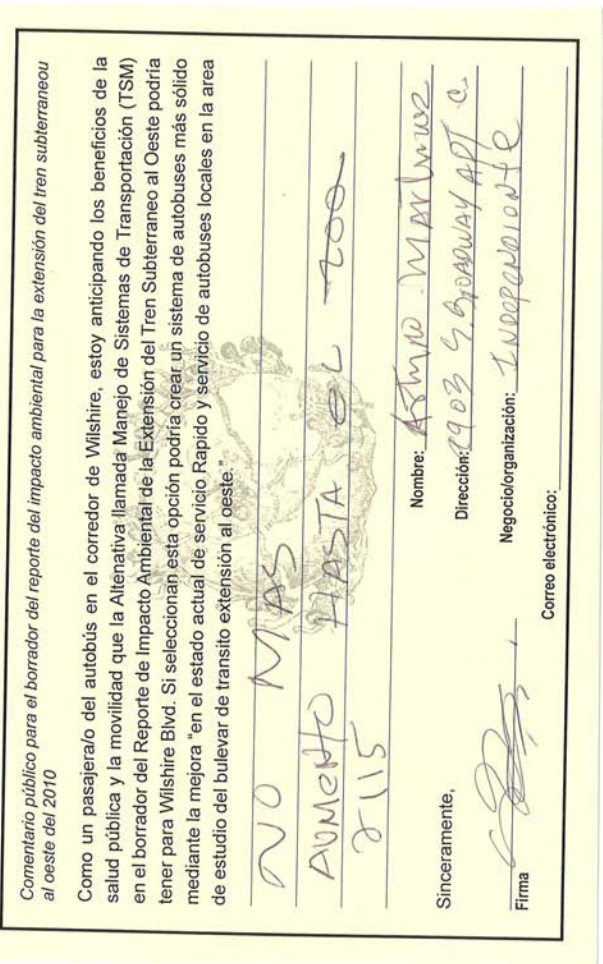 Comentario público para el borrador del reporte del impacto ambiental para la extensión del tren subterraneou
al oeste del 2010
Como un pasajera/o del autobús en el corredor de Wilshire, estoy anticipando los beneficios de la
salud pública y la movilidad que la Altenativa llamada Manejo de Sistemas de Transportación (TSM)
en el borrador del Reporte de Impacto Ambiental de la Extensión del Tren Subterraneo al Oeste podría
tener para Wilshire Blvd. Si seleccionan esta opción podría crear un sistema de autobuses más sólido
mediante la mejora "en el estado actual de servicio Rapido y servicio de autobuses locales en la area
de estudio del bulevar de transito extensión al oeste."
NO MAS
AUMENTO HASTA EL 200
2115
Sinceramente,
Nombre: Arturo Martinez
Dirección: 1903 S. BROADWAY APT C.
Negocio/organización: INDEPENDIONTE
Firma
Correo electrónico: